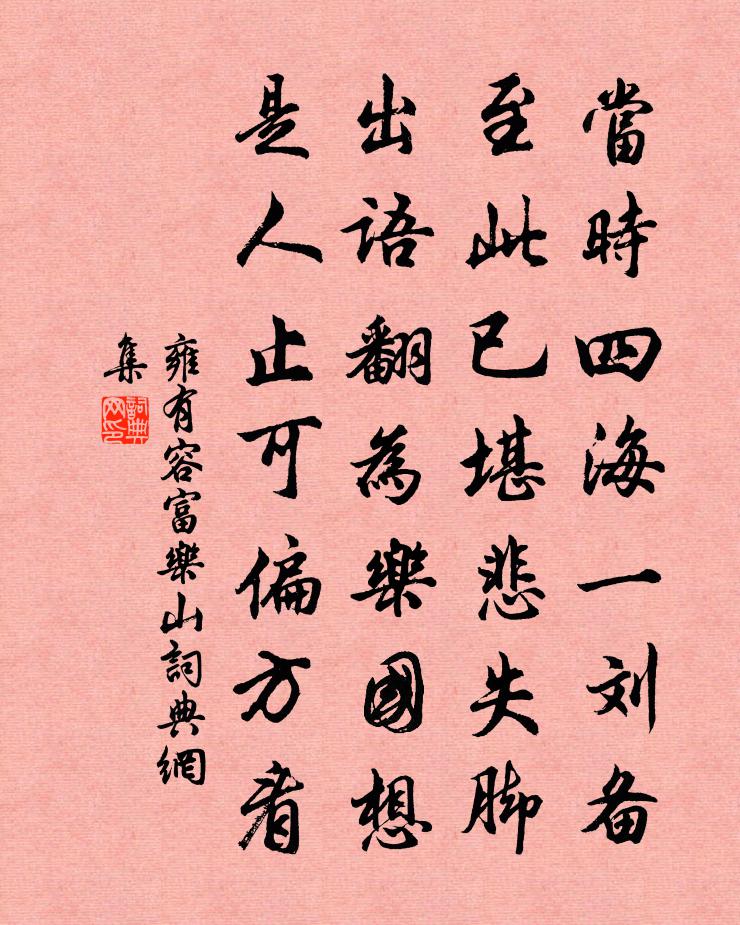 當時四海一刘备
至此已堪悲失脚
出語翻為樂國想
是人止可偏方看
雍有容富樂山詞典網
集
詞典
网印